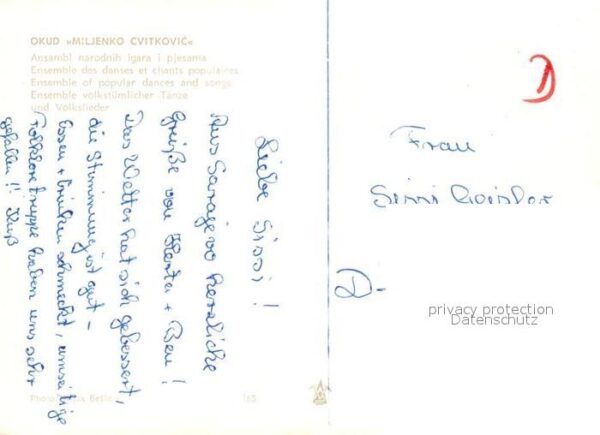 OKUD »MILJENKO CVITKOVIĆ«
Ansambl narodnih igara i pjesama
Ensemble des danses et chants populaires
Ensemble of popular dances and songs
Ensemble volkstümlicher Tänze
und Volkslieder
Liebe Sissi!
Aus Sarajevo herzliche
Grüße von Herta + Beu!
Das Wetter hat sich gebessert,
die Stimmung ist gut -
Essen + trinken schmeckt, umseitige
Folkloretruppe haben uns sehr
gefallen!! Kuß
Photo
165
D
Frau
Sissi
D.
privacy protection
Datenschutz